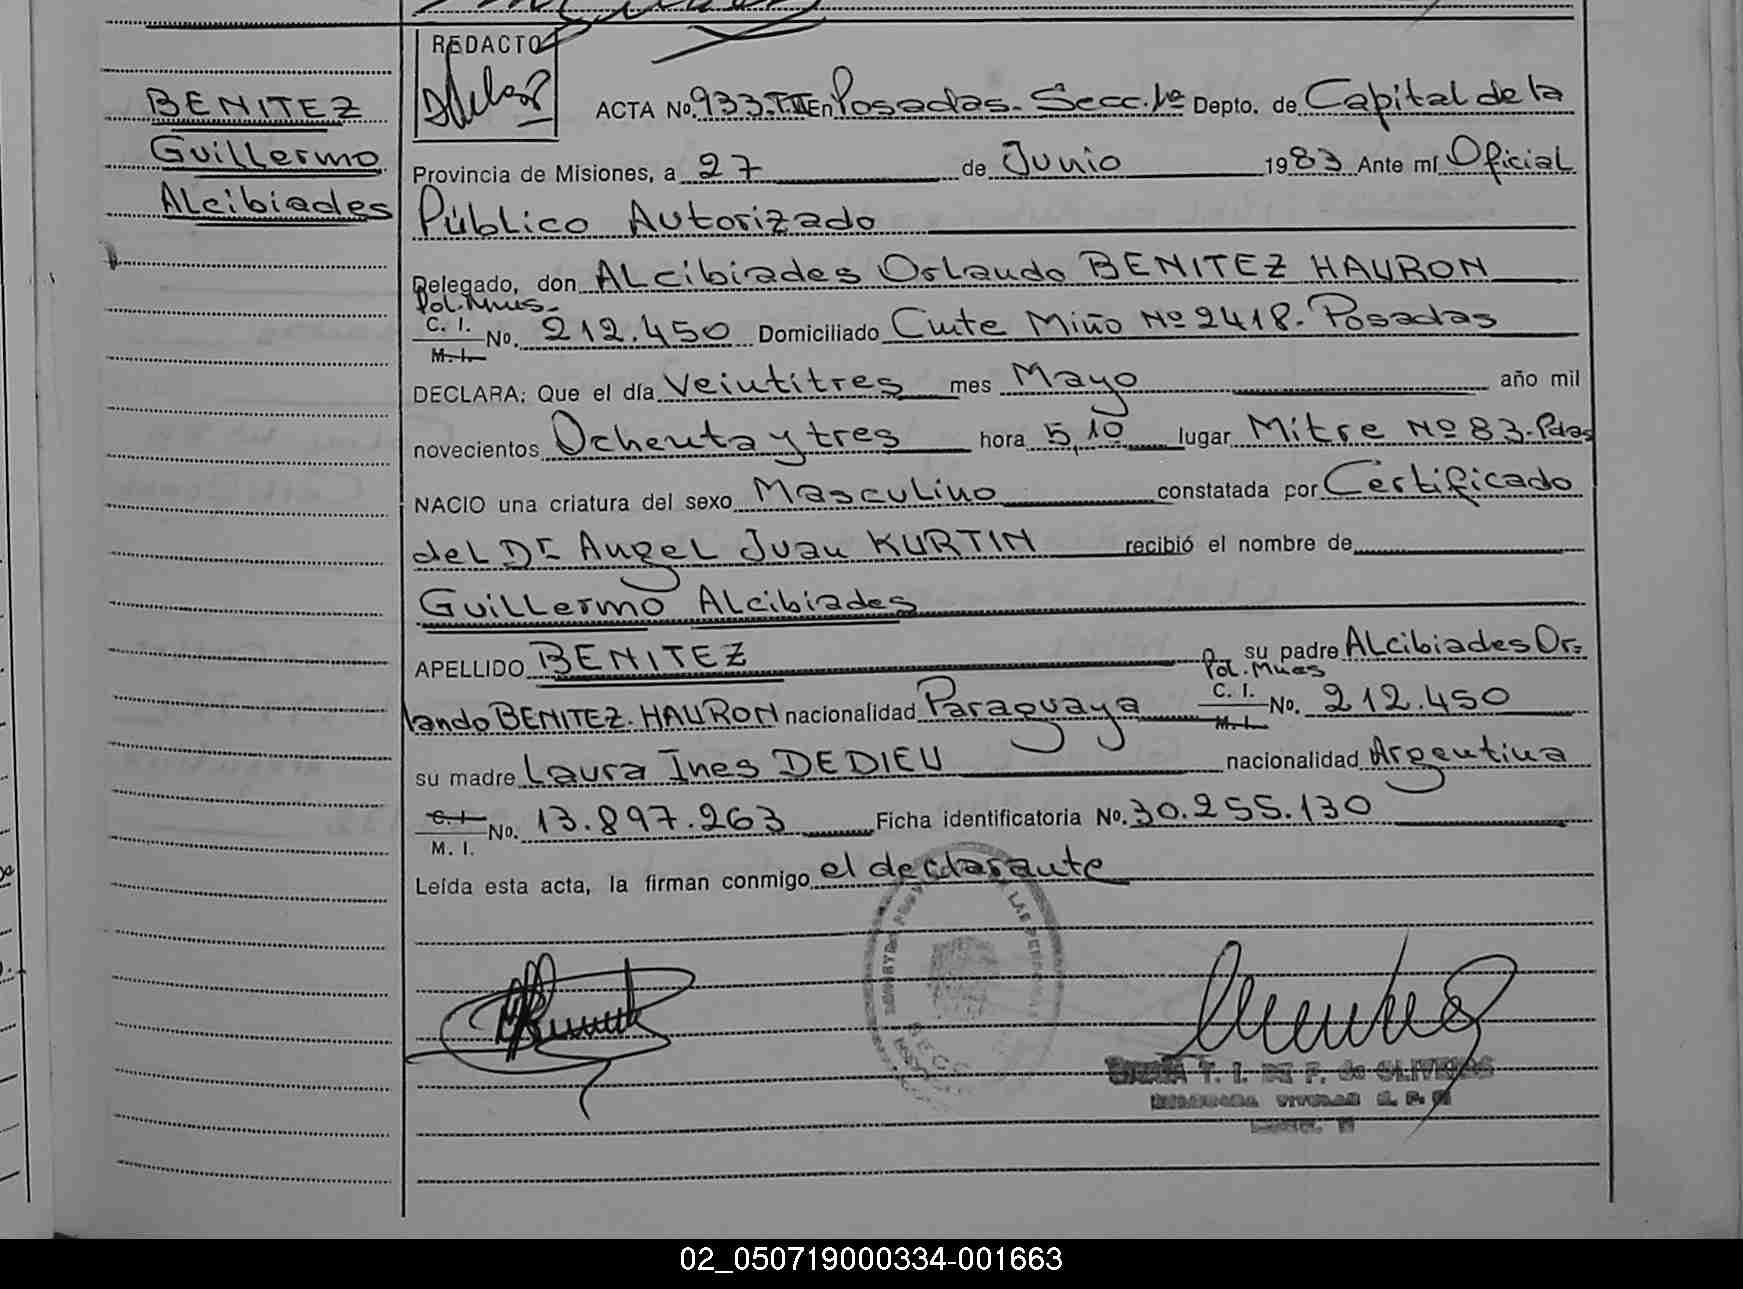 REDACTO
BENITEZ
Guillermo
Alcibiades
ACTA No. 933.T.II En Posadas. Secc. 1ª Depto. de Capital de la
Provincia de Misiones, a 27 de Junio 1983 Ante mí Oficial
Público Autorizado
Delegado, don Alcibiades Orlando BENITEZ HAURON
Pol. Mnes.
C. I.
M. I.
No. 212.450 Domiciliado Cmte Miño Nº 2418. Posadas
DECLARA: Que el día Veintitres mes Mayo año mil
novecientos Ochenta y tres hora 5,10 lugar Mitre Nº 83. Pdas
NACIO una criatura del sexo Masculino constatada por Certificado
del Dr. Angel Juan KURTIN recibió el nombre de
Guillermo Alcibiades
APELLIDO BENITEZ su padre Alcibiades Or=
lando BENITEZ. HAURON nacionalidad Paraguaya Pol. Mnes C. I. M. I. No. 212.450
su madre Laura Ines DEDIEU nacionalidad Argentina
C. I. M. I. No. 13.897.263 Ficha identificatoria No. 30.255.130
Leída esta acta, la firman conmigo el declarante
02_050719000334-001663